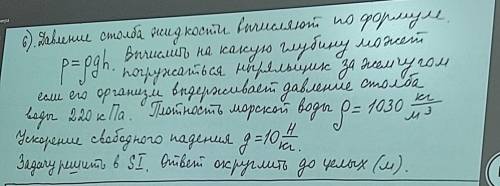 6). Давление столба жидкости вычисляют по формуле
p = ρgh. Вычислить на какую глубину может
погружаться ныряльщик за жемчугом
если его организм выдерживает давление столба
воды 220 кПа. Плотность морской воды ρ = 1030 кг/м³
Ускорение свободного падения g = 10 Н/кг.
Задачу решить в SI. Ответ округлить до целых (м).